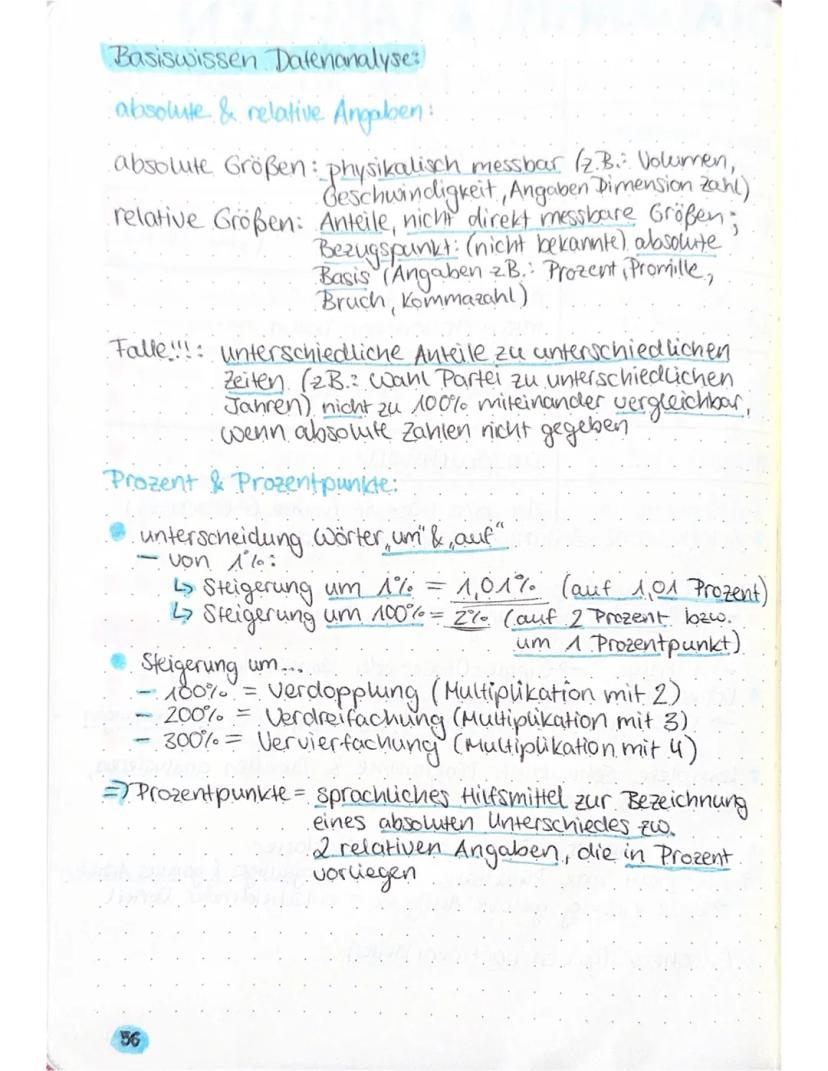 Basiswissen Datenanalyse:
absolute & relative Angaben:
absolute Größen: physikalisch messbar (z.B.: Volumen,
Geschwindigkeit, Angaben Dimension Zahl)
relative Größen: Anteile, nicht direkt messbare Größen;
Bezugspunkt: (nicht bekannte) absolute
Basis (Angaben z.B.: Prozent, Promille,
Bruch, Kommazahl)
Falle!!!: unterschiedliche Anteile zu unterschiedlichen
Zeiten (z.B.: Wahl Partei zu unterschiedlichen
Jahren) nicht zu 100% miteinander vergleichbar,
wenn absolute Zahlen nicht gegeben
Prozent & Prozentpunkte:
unterscheidung Wörter „um" & „auf"
- von 1%:
↳ Steigerung um 1% = 1,01% (auf 1,01 Prozent)
↳ Steigerung um 100% = 2% (auf 2 Prozent bzw.
um 1 Prozentpunkt)
Steigerung um...
- 100% = Verdopplung (Multiplikation mit 2)
- 200% = Verdreifachung (Multiplikation mit 3)
- 300% = Vervierfachung (Multiplikation mit 4)
⇒ Prozentpunkte = sprachliches Hilfsmittel zur Bezeichnung
eines absoluten Unterschiedes zw.
2 relativen Angaben, die in Prozent
vorliegen
56